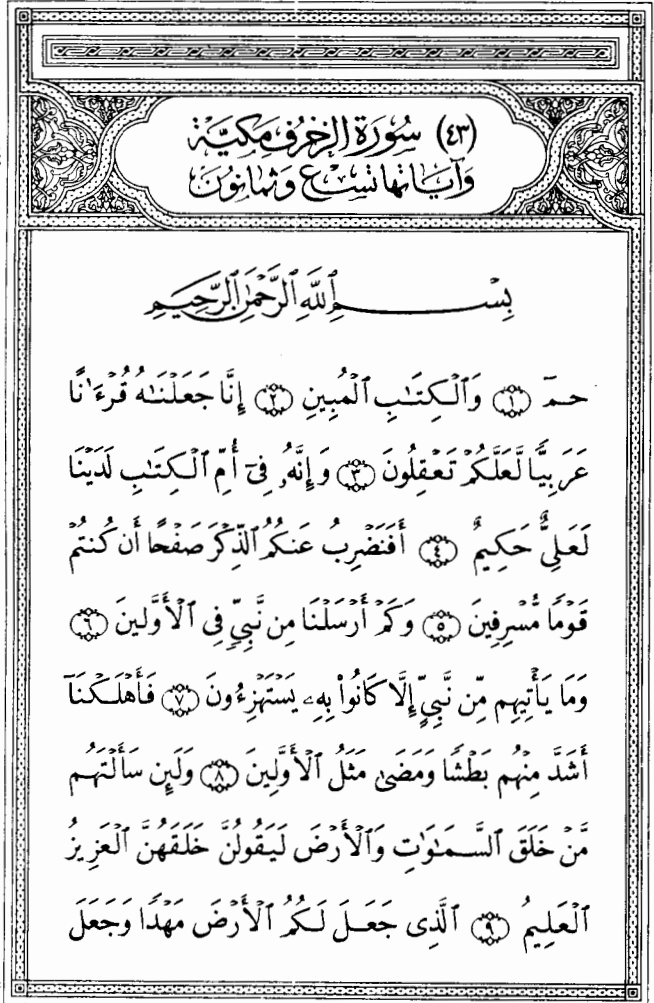 (٤٣) سُورَةُ الزُّخْرُفِ مَكِّيَّة
وَآيَاتُهَا تِسْعٌ وَثَمَانُونَ
بِسْمِ ٱللَّهِ ٱلرَّحْمَٰنِ ٱلرَّحِيمِ
حمٓ ١ وَٱلْكِتَٰبِ ٱلْمُبِينِ ٢ إِنَّا جَعَلْنَٰهُ قُرْءَٰنًا
عَرَبِيًّا لَّعَلَّكُمْ تَعْقِلُونَ ٣ وَإِنَّهُۥ فِىٓ أُمِّ ٱلْكِتَٰبِ لَدَيْنَا
لَعَلِىٌّ حَكِيمٌ ٤ أَفَنَضْرِبُ عَنكُمُ ٱلذِّكْرَ صَفْحًا أَن كُنتُمْ
قَوْمًا مُّسْرِفِينَ ٥ وَكَمْ أَرْسَلْنَا مِن نَّبِىٍّ فِى ٱلْأَوَّلِينَ ٦
وَمَا يَأْتِيهِم مِّن نَّبِىٍّ إِلَّا كَانُوا۟ بِهِۦ يَسْتَهْزِءُونَ ٧ فَأَهْلَكْنَآ
أَشَدَّ مِنْهُم بَطْشًا وَمَضَىٰ مَثَلُ ٱلْأَوَّلِينَ ٨ وَلَئِن سَأَلْتَهُم
مَّنْ خَلَقَ ٱلسَّمَٰوَٰتِ وَٱلْأَرْضَ لَيَقُولُنَّ خَلَقَهُنَّ ٱلْعَزِيزُ
ٱلْعَلِيمُ ٩ ٱلَّذِى جَعَلَ لَكُمُ ٱلْأَرْضَ مَهْدًا وَجَعَلَ